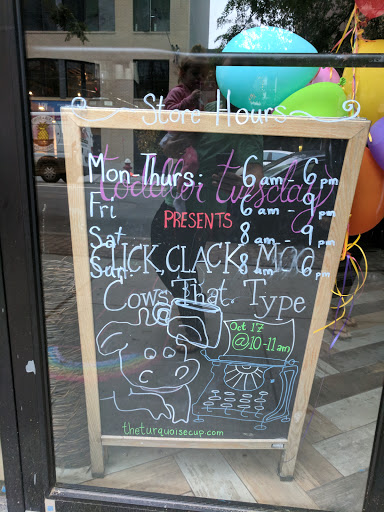 Store Hours
Mon-Thurs 6am - 6pm
Fri 6am - 9pm
Sat 8am - 9pm
Sun 8am - 6pm
toddler tuesday
PRESENTS
CLICK, CLACK, MOO
Cows That Type
Oct 17
@10-11am
theturquoisecup.com